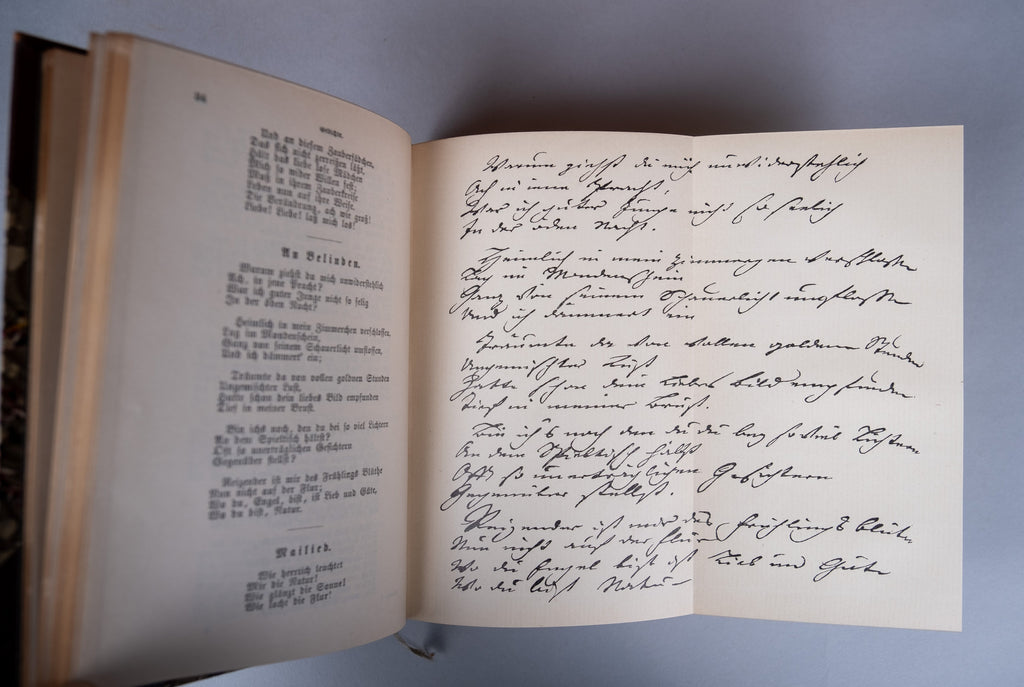 34
Gedichte.
Und an diesem Zauberfädchen,
Das sich nicht zerreißen läßt,
Hält das liebe lose Mädchen
Mich so wider Willen fest;
Muß in ihrem Zauberkreise
Leben nun auf ihre Weise.
Die Veränderung, ach wie groß!
Liebe! Liebe! laß mich los!
An Belinden.
Warum ziehst du mich unwiderstehlich
Ach, in jene Pracht?
War ich guter Junge nicht so selig
In der öden Nacht?
Heimlich in mein Zimmerchen verschlossen,
Lag im Mondenschein,
Ganz von seinem Schauerlicht umflossen,
Und ich dämmert' ein;
Träumte da von vollen goldnen Stunden
Ungemischter Lust,
Hatte schon dein liebes Bild empfunden
Tief in meiner Brust.
Bin ichs noch, den du bei so viel Lichtern
An dem Spieltisch hältst?
Oft so unerträglichen Gesichtern
Gegenüber stellst?
Reizender ist mir des Frühlings Blüthe
Nun nicht auf der Flur;
Wo du, Engel, bist, ist Lieb und Güte,
Wo du bist, Natur.
Mailied.
Wie herrlich leuchtet
Mir die Natur!
Wie glänzt die Sonne!
Wie lacht die Flur!
Warum ziehst du mich unwiderstehlich
Ach in iene Pracht,
War ich guter Junge nicht so seelich
In der öden Nacht.
Heimlich in mein Zimmergen verschlossen
Lag im Mondenschein
Ganz von seinem Schauerlicht umflossen
Und ich dämmert ein
Träumte da von vollen goldenen Stunden
Ungemischter Lust
Hatte schon dein liebes Bild empfunden
Tief in meiner Brust.
Bin ich's noch den du bey so viel Lichtern
An dem Spieltisch hälst
Oft so unerträglichen Gesichtern
Gegenüber stellst.
Reizender ist mir des Frühlings Blüte
Nun nicht auf der Flur
Wo du Engel bist ist Lieb und Güte
Wo du bist Natur